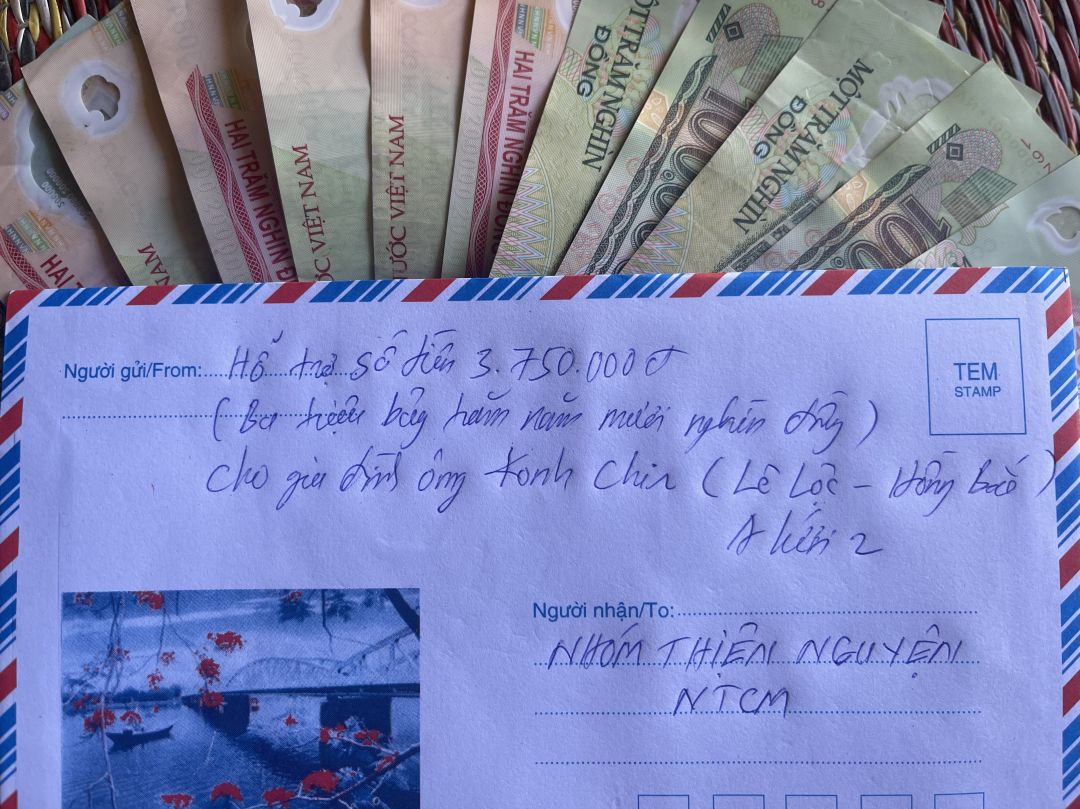 HAI TRĂM NGHÌN ĐỒNG
ƯỚC VIỆT NAM
HAI TRĂM NGHÌN ĐỒNG
MỘT TRĂM NGHÌN
ĐỒNG
MỘT TRĂM NGHÌN
ĐỒNG
Người gửi/From: Hỗ trợ số tiền 3.750.000đ
(Ba triệu bảy trăm năm mươi nghìn đồng)
cho gia đình ông Konh Chia (Lê Lộc - Hồng Bắc)
A lưới 2
TEM
STAMP
Người nhận/To:
NHÓM THIỆN NGUYỆN
NTCM